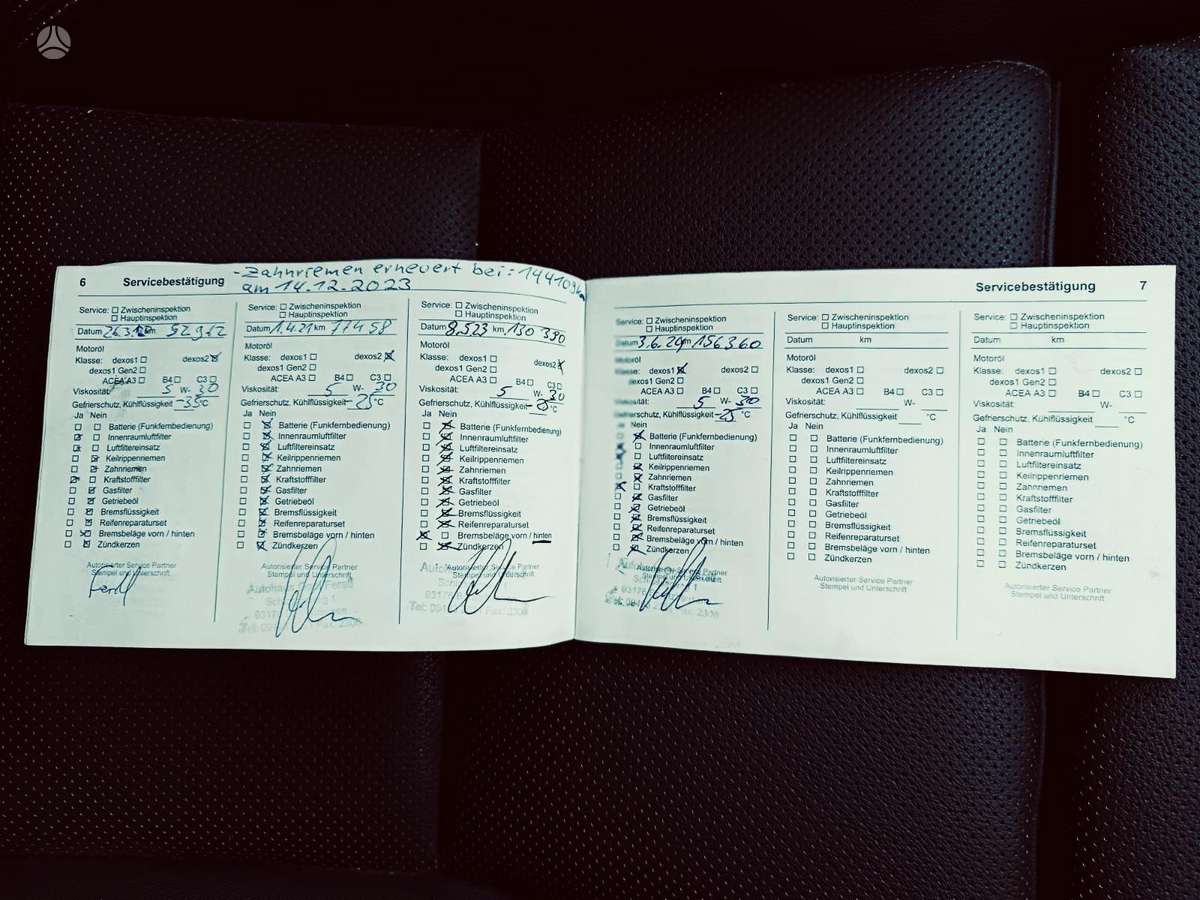 6 Servicebestätigung
-Zahnriemen erneuert bei: 144109km
am 14.12.2023
Service: Zwischeninspektion
Hauptinspektion
Datum km 52912
Motoröl
Klasse: dexos1 dexos2
dexos1 Gen2
ACEA A3 B4 C3
Viskosität: 5 W- 30
Gefrierschutz, Kühlflüssigkeit -35 °C
Ja Nein
Batterie (Funkfernbedienung)
Innenraumluftfilter
Luftfiltereinsatz
Keilrippenriemen
Zahnriemen
Kraftstofffilter
Gasfilter
Getriebeöl
Bremsflüssigkeit
Reifenreparaturset
Bremsbeläge vorn / hinten
Zündkerzen
Autorisierter Service Partner
Stempel und Unterschrift
Service: Zwischeninspektion
Hauptinspektion
Datum 1.4.21 km 77458
Motoröl
Klasse: dexos1 dexos2
dexos1 Gen2
ACEA A3 B4 C3
Viskosität: 5 W- 30
Gefrierschutz, Kühlflüssigkeit -25 °C
Ja Nein
Batterie (Funkfernbedienung)
Innenraumluftfilter
Luftfiltereinsatz
Keilrippenriemen
Zahnriemen
Kraftstofffilter
Gasfilter
Getriebeöl
Bremsflüssigkeit
Reifenreparaturset
Bremsbeläge vorn / hinten
Zündkerzen
Autorisierter Service Partner
Stempel und Unterschrift
Service: Zwischeninspektion
Hauptinspektion
Datum 8.523 km 130 390
Motoröl
Klasse: dexos1 dexos2
dexos1 Gen2
ACEA A3 B4 C3
Viskosität: 5 W- 30
Gefrierschutz, Kühlflüssigkeit °C
Ja Nein
Batterie (Funkfernbedienung)
Innenraumluftfilter
Luftfiltereinsatz
Keilrippenriemen
Zahnriemen
Kraftstofffilter
Gasfilter
Getriebeöl
Bremsflüssigkeit
Reifenreparaturset
Bremsbeläge vorn / hinten
Zündkerzen
Autorisierter Service Partner
Stempel und Unterschrift
Servicebestätigung 7
Service: Zwischeninspektion
Hauptinspektion
Datum km 156360
Motoröl
Klasse: dexos1 dexos2
dexos1 Gen2
ACEA A3 B4 C3
Viskosität: 5 W- 30
Gefrierschutz, Kühlflüssigkeit -25 °C
Nein
Batterie (Funkfernbedienung)
Innenraumluftfilter
Luftfiltereinsatz
Keilrippenriemen
Zahnriemen
Kraftstofffilter
Gasfilter
Getriebeöl
Bremsflüssigkeit
Reifenreparaturset
Bremsbeläge vorn / hinten
Zündkerzen
Service: Zwischeninspektion
Hauptinspektion
Datum km
Motoröl
Klasse: dexos1 dexos2
dexos1 Gen2
ACEA A3 B4 C3
Viskosität: W-
Gefrierschutz, Kühlflüssigkeit °C
Ja Nein
Batterie (Funkfernbedienung)
Innenraumluftfilter
Luftfiltereinsatz
Keilrippenriemen
Zahnriemen
Kraftstofffilter
Gasfilter
Getriebeöl
Bremsflüssigkeit
Reifenreparaturset
Bremsbeläge vorn / hinten
Zündkerzen
Autorisierter Service Partner
Stempel und Unterschrift
Service: Zwischeninspektion
Hauptinspektion
Datum km
Motoröl
Klasse: dexos1 dexos2
dexos1 Gen2
ACEA A3 B4 C3
Viskosität: W-
Gefrierschutz, Kühlflüssigkeit °C
Ja Nein
Batterie (Funkfernbedienung)
Innenraumluftfilter
Luftfiltereinsatz
Keilrippenriemen
Zahnriemen
Kraftstofffilter
Gasfilter
Getriebeöl
Bremsflüssigkeit
Reifenreparaturset
Bremsbeläge vorn / hinten
Zündkerzen
Autorisierter Service Partner
Stempel und Unterschrift